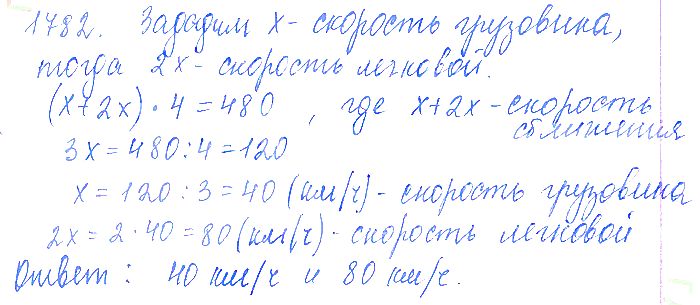 1782. Зададим x - скорость грузовика,
тогда 2x - скорость легковой.
(x+2x)·4=480, где x+2x - скорость
сближения
3x=480:4=120
x=120:3=40 (км/ч) - скорость грузовика
2x=2·40=80 (км/ч) - скорость легковой
Ответ: 40 км/ч и 80 км/ч.